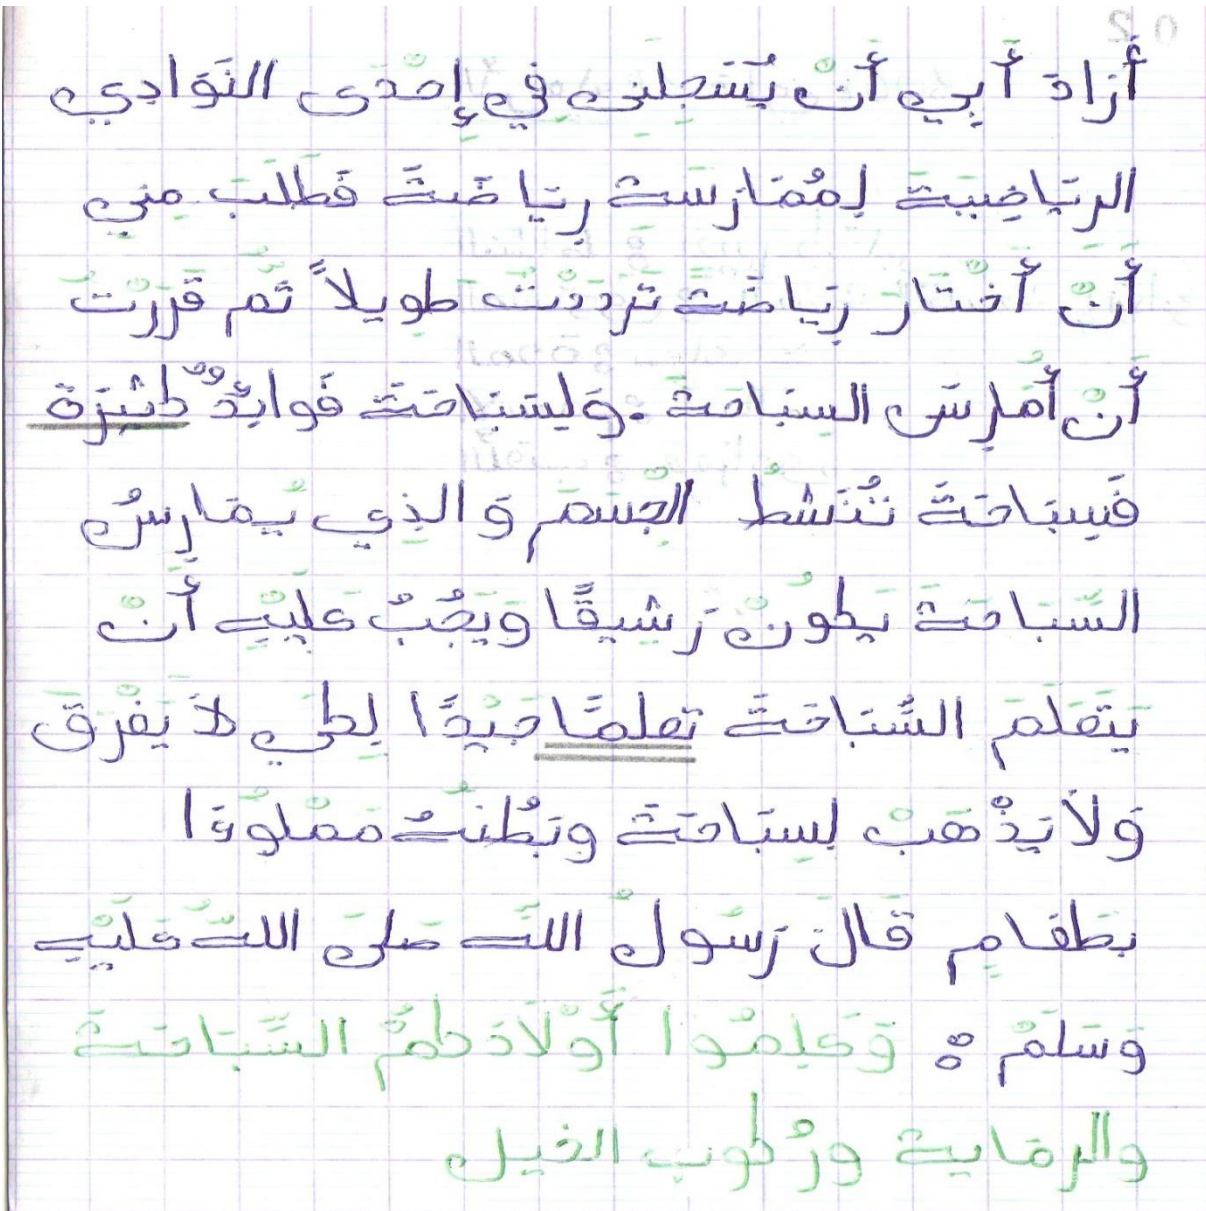 أَرَادَ أَبِي أَنْ يُسَجِلَنِى فِي إِحْدَى النَوَادِي
الرِيَاضِيَةَ لِمُمَارَسَة رِيَاضَةَ فَطَلَبَ مِنِي
أَنْ أَخْتَارَ رِيَاضَةَ تَرَدَدْتُ طويلاً ثُم قَرَرْتُ
أَنْ أُمَارِسَ السِبَاحَةَ. وَلِسِبَاحَةَ فَوائِدٌ كثِيرَة
فَسِبَاحَةَ تُنَشطُ الْجِسْمَ وَ الذِي يُمَارِسُ
السِّبَاحَةَ يَكونُ رَشِيقًا وَيَجُبُ عَلَيْهِ أَنْ
يَتَعَلَمَ السِّبَاحَةَ تعلمًا جَيْدًا لِكَي لاَ يَغْرَقَ
وَلاَ يَذْهَبْ لِسِبَاحَةَ وبَطْنُهُ مَمْلُوءَا
بطَعَامِ قَالَ رَسُولُ اللّهِ صَلىَ اللّهُ عَلَيْهِ
وَسَلَمْ : وَعَلِمُوا أَوْلاَدَكمْ السِّبَاحَةَ
والرماية ورُكوب الخيل